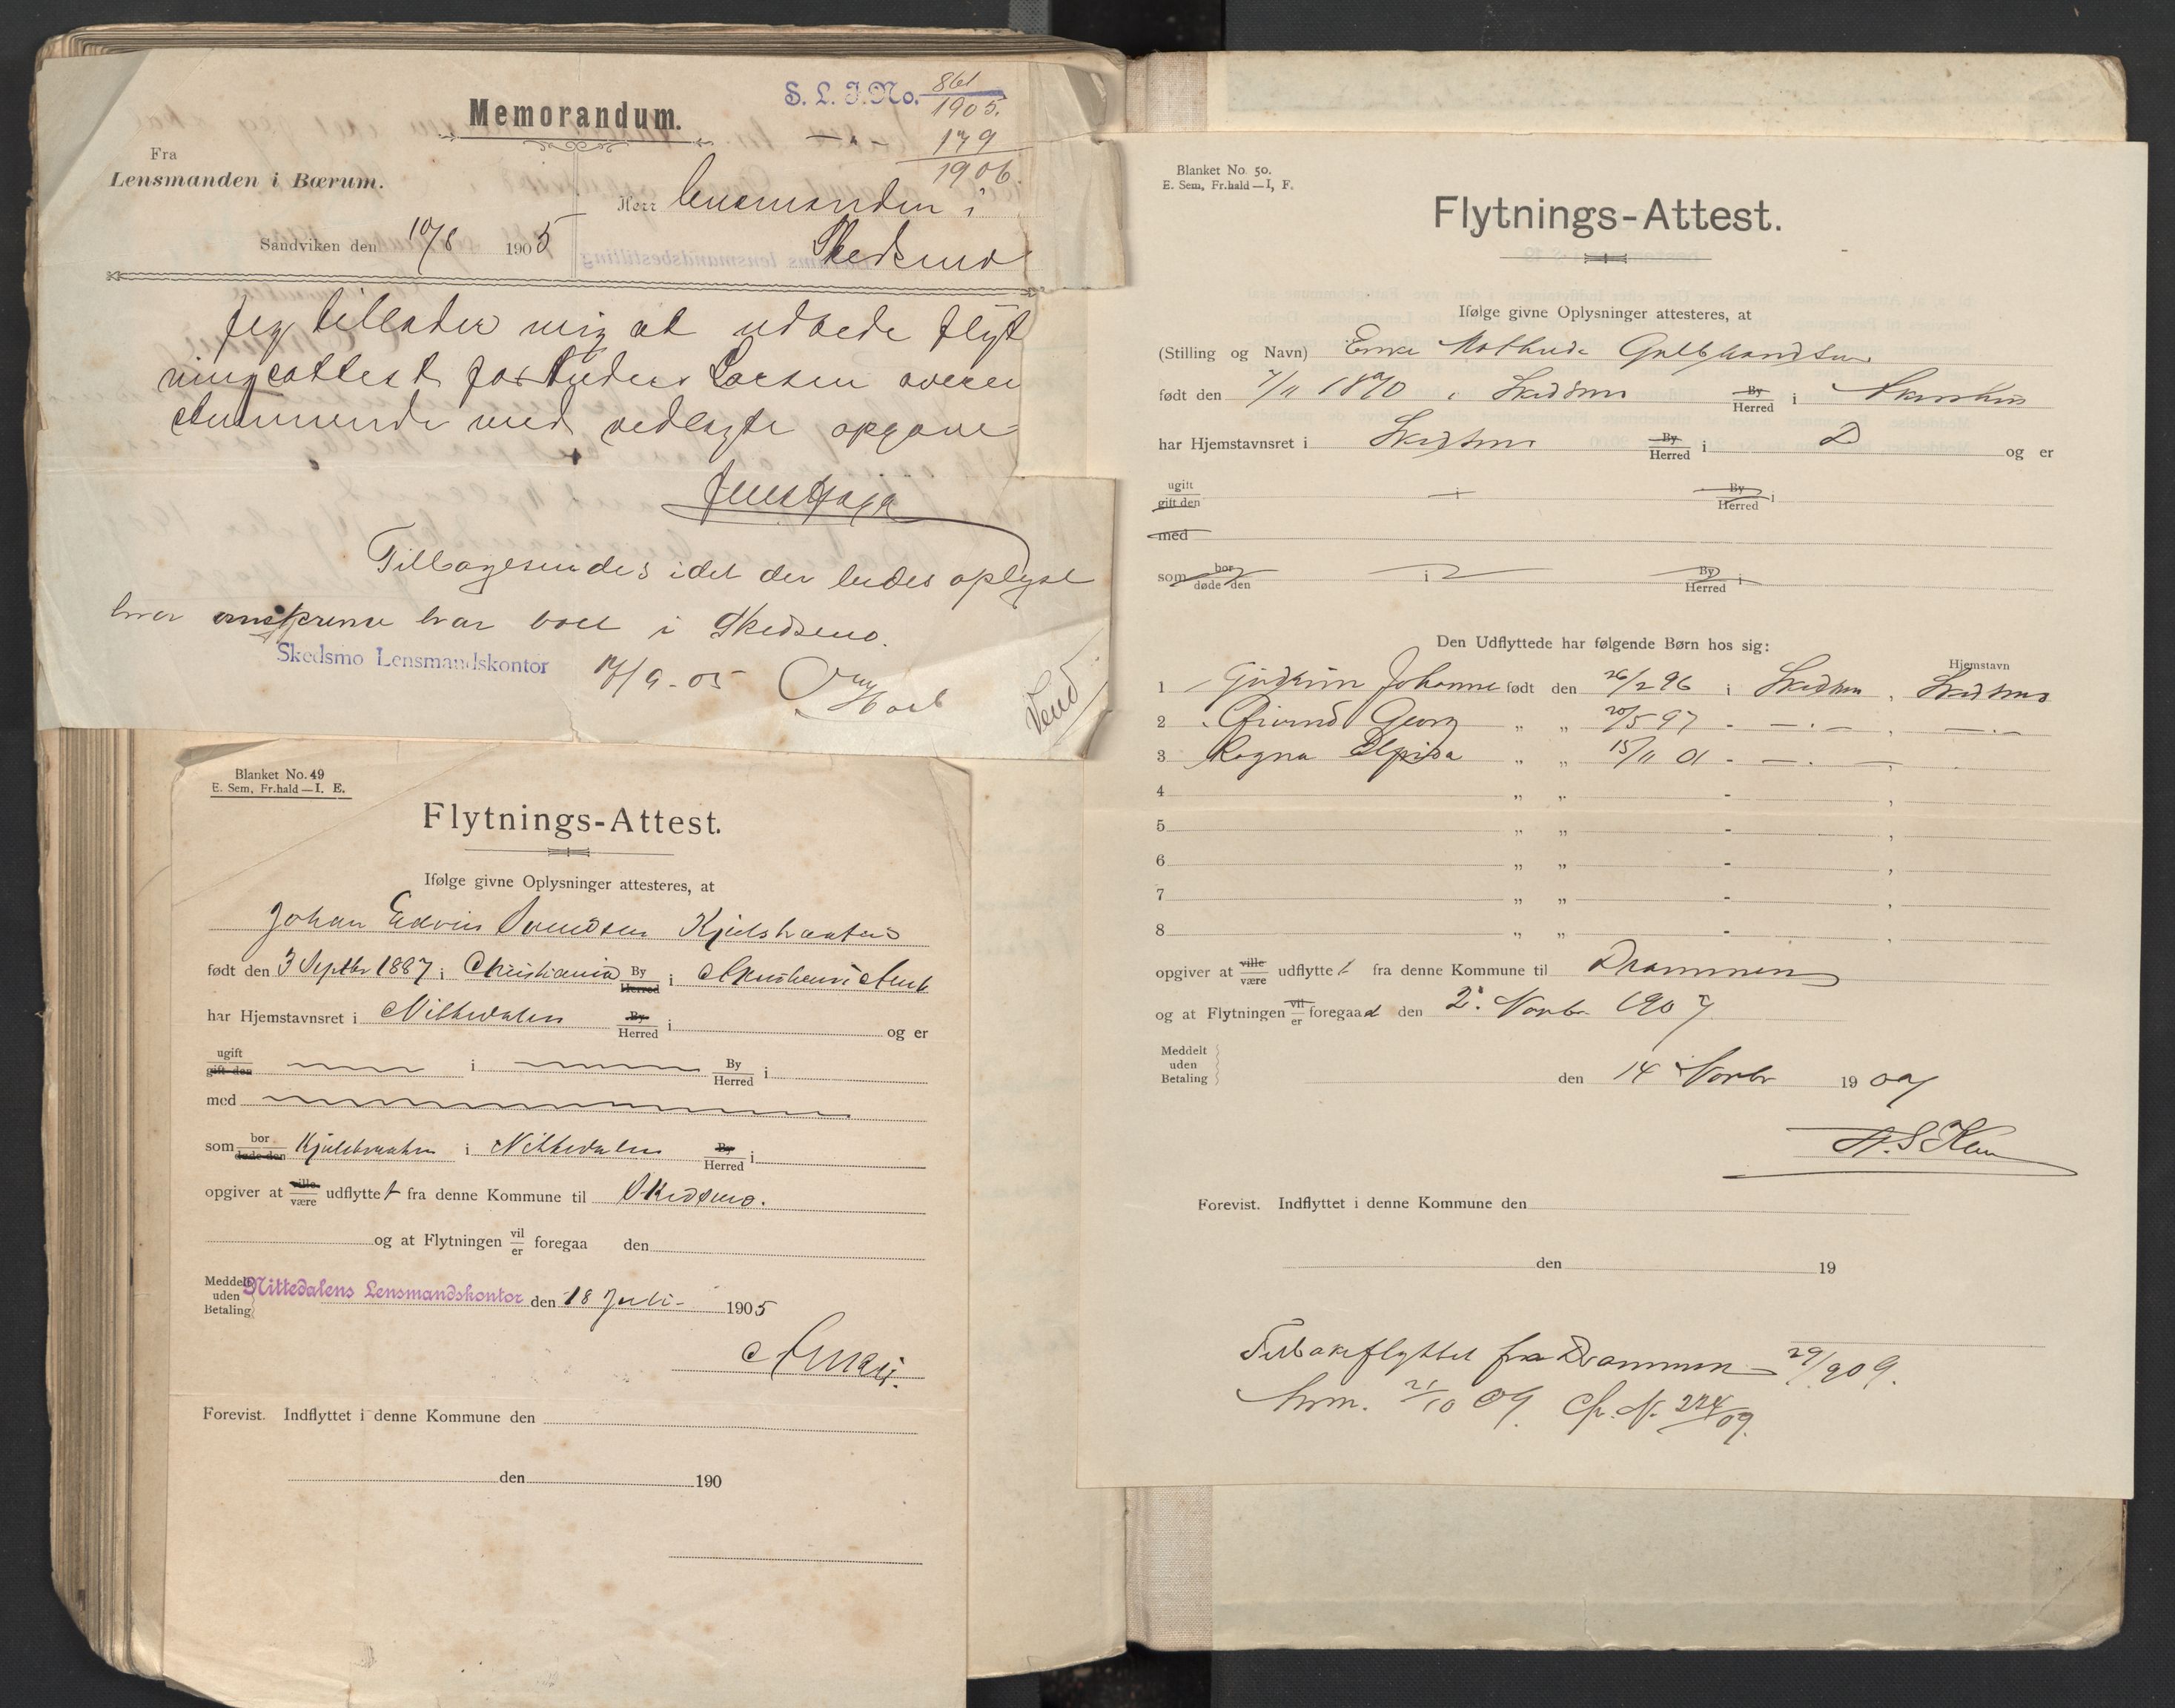 S. L. J. No. 861
1905.
179
1906.
Memorandum.
Fra
Lensmanden i Bærum.
Herr lensmanden i
Skedsmo
Sandviken den 10/8 1905
Jeg tillader mig at udbede flyt
ningsattest for Anders Larsen overen
stemmende med vedlagte opgave
Jens Haga
Tilbagesendes idet der bedes oplyst
hvor har boet i Skedsmo.
Skedsmo Lensmandskontor 17/9-05
Vend
Blanket No. 49
E. Sem, Fr.hald—I. E.
Flytnings-Attest.
Ifølge givne Oplysninger attesteres, at
Johan Edvin Svendsen Kjulsbraaten
født den 3 Septbr 1887 i Christiania By Herred i Akershus Amt
har Hjemstavnsret i Nittedalen By Herred i og er
ugift gift den i By Herred i
med
som bor døde den Kjulsbraaten i Nittedalen By Herred i
opgiver at ville være udflyttet fra denne Kommune til Skedsmo.
og at Flytningen vil er foregaa den
Meddelt uden Betaling Nittedalens Lensmandskontor den 18 Juli 1905
Forevist. Indflyttet i denne Kommune den
den 190
Blanket No. 50.
E. Sem, Fr.hald—I, F.
Flytnings-Attest.
Ifølge givne Oplysninger attesteres, at
(Stilling og Navn) Enke Mathilde Gulbrandsen
født den 7/11 1870 i Skedsmo By Herred i Akershus
har Hjemstavnsret i Skedsmo By Herred i D og er
ugift gift den i By Herred i
med
som bor døde den i By Herred i
Den Udflyttede har følgende Børn hos sig:
Hjemstavn
1 Gudrun Johanne født den 26/2 96 i Skedsmo, Skedsmo
2 Eivind Georg „ „ 20/5 97 - —.— , —.—
3 Ragna Elpida „ „ 15/11 01 - —.— ,
4 „ „ - ,
5 „ „ - ,
6 „ „ - ,
7 „ „ - ,
8 „ „ - ,
opgiver at ville være udflyttet fra denne Kommune til Drammen
og at Flytningen vil er foregaad den 2. Novbr 1907
Meddelt uden Betaling den 14 Novbr 1907
Forevist. Indflyttet i denne Kommune den
den 19
Tilbakeflyttet fra Drammen 29/9 09.
21/10 09. 224/09.